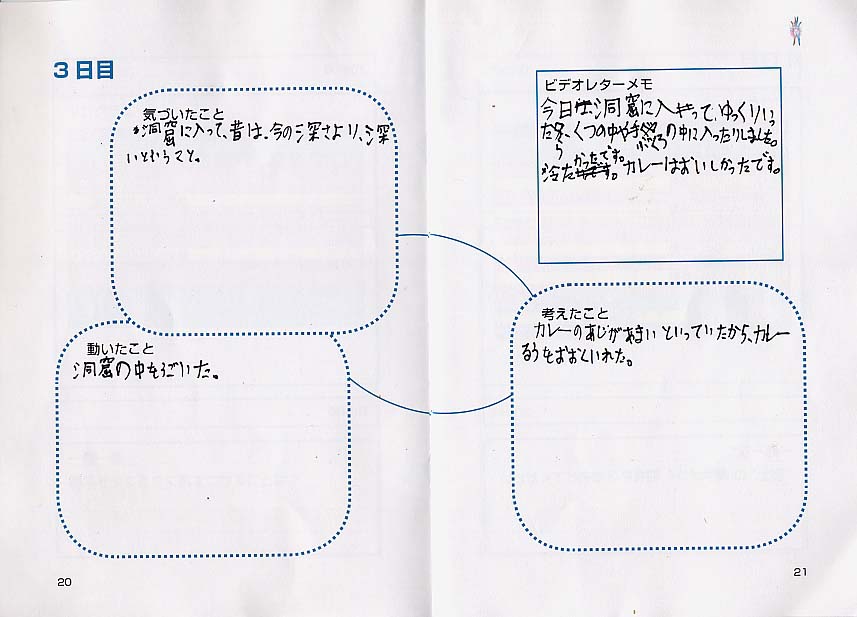 3日目
気づいたこと
洞窟に入って、昔は、今の深さより、深
いということ。
動いたこと
洞窟の中をうごいた。
20
ビデオレターメモ
今日は洞窟に入って、ゆっくり
くつの中や手ぶくろの中に入ったりしました。
冷たかったです。カレーはおいしかったです。
考えたこと
カレーのあじがあまいといっていたから、カレー
るうをおおくいれた。
21